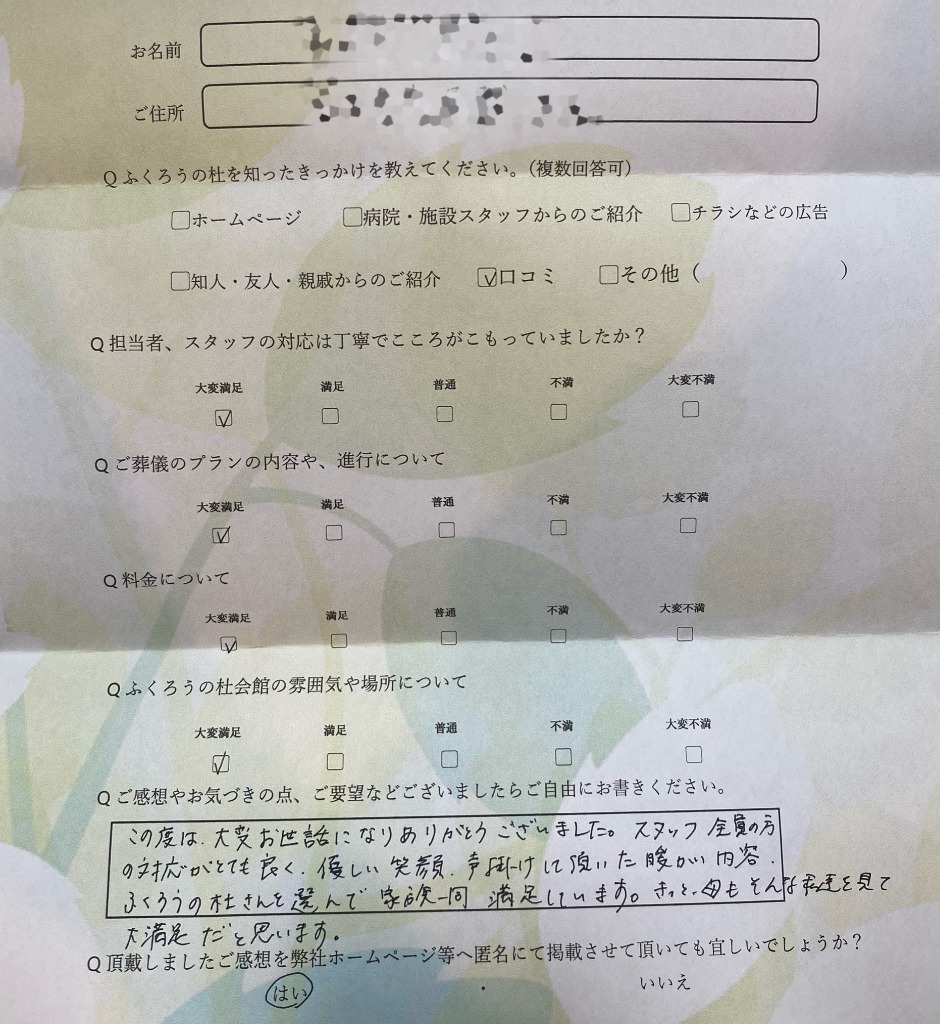 お名前
ご住所
Q ふくろうの杜を知ったきっかけを教えてください。（複数回答可）
ホームページ 病院・施設スタッフからのご紹介 チラシなどの広告
知人・友人・親戚からのご紹介 口コミ その他（ ）
Q 担当者、スタッフの対応は丁寧でこころがこもっていましたか？
大変満足 満足 普通 不満 大変不満
Q ご葬儀のプランの内容や、進行について
大変満足 満足 普通 不満 大変不満
Q 料金について
大変満足 満足 普通 不満 大変不満
Q ふくろうの杜会館の雰囲気や場所について
大変満足 満足 普通 不満 大変不満
Q ご感想やお気づきの点、ご要望などございましたらご自由にお書きください。
この度は、大変お世話になりありがとうございました。スタッフ全員の方
の対応がとても良く、優しい笑顔、声掛けして頂いた暖かい内容、
ふくろうの杜さんを選んで家族一同 満足しています。きっと、母もそんな私達を見て
大満足だと思います。
Q 頂戴しましたご感想を弊社ホームページ等へ匿名にて掲載させて頂いても宜しいでしょうか？
はい ・ いいえ